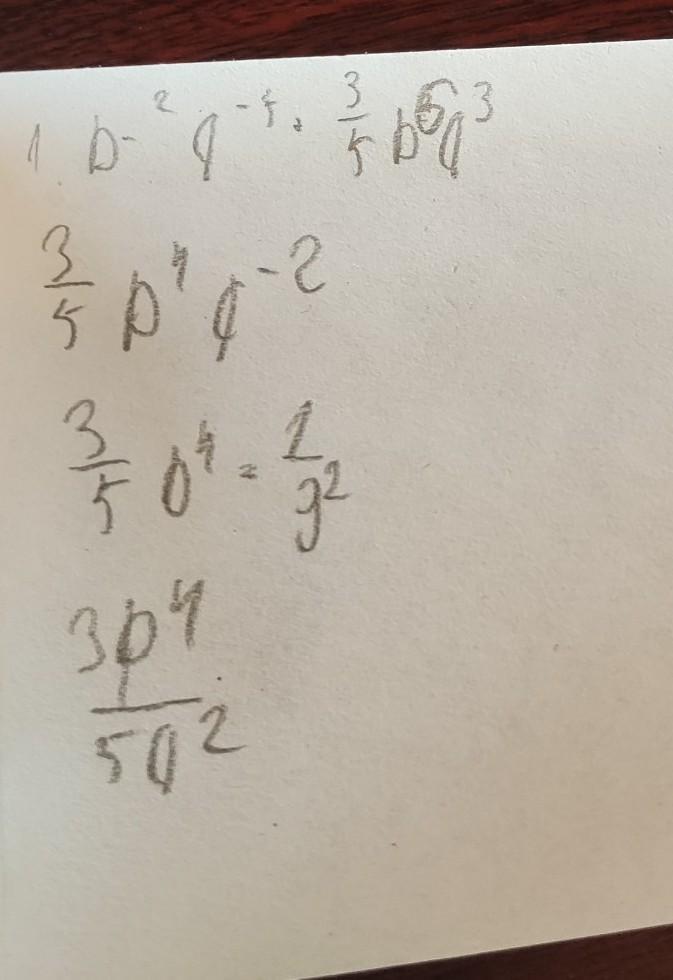 1. p⁻² q⁻⁵ · 3/5 p⁶ q³
3/5 p⁴ q⁻²
3/5 p⁴ = 1/q²
3p⁴/5q²